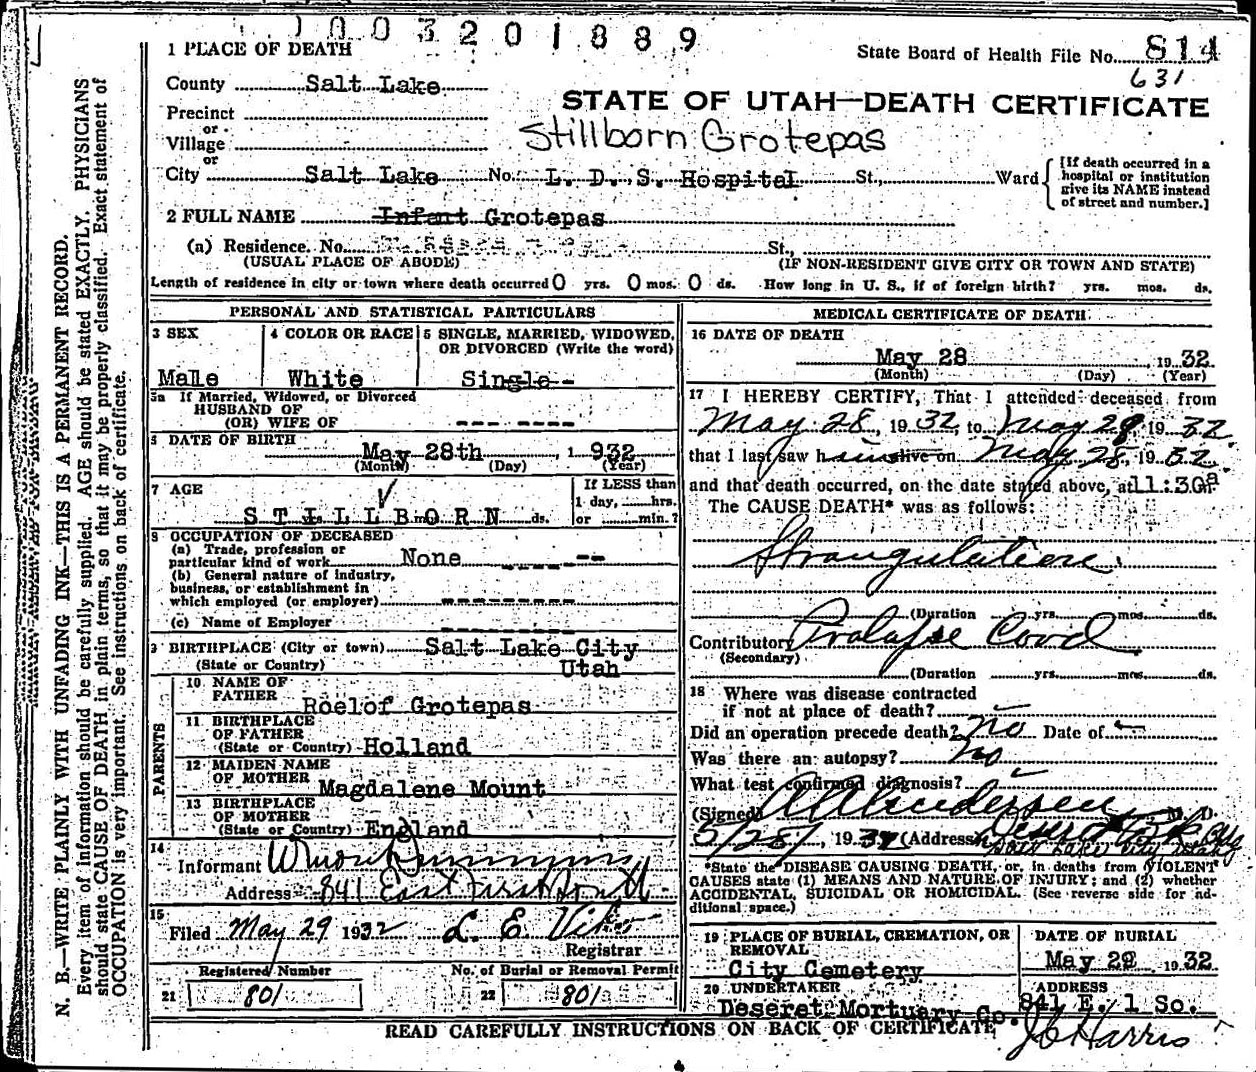 1003201889
1 PLACE OF DEATH
State Board of Health File No. 814
631
County Salt Lake
STATE OF UTAH—DEATH CERTIFICATE
Precinct
or
Village
Stillborn Grotepas
or
City Salt Lake No. L. D. S. Hospital St., Ward
[If death occurred in a
hospital or institution
give its NAME instead
of street and number.]
2 FULL NAME Infant Grotepas
(a) Residence. No. St.,
(USUAL PLACE OF ABODE) (IF NON-RESIDENT GIVE CITY OR TOWN AND STATE)
Length of residence in city or town where death occurred 0 yrs. 0 mos. 0 ds. How long in U. S., if of foreign birth? yrs. mos. ds.
N. B.—WRITE PLAINLY WITH UNFADING INK—THIS IS A PERMANENT RECORD.
Every item of information should be carefully supplied. AGE should be stated EXACTLY. PHYSICIANS
should state CAUSE OF DEATH in plain terms, so that it may be properly classified. Exact statement of
OCCUPATION is very important. See instructions on back of certificate.
PERSONAL AND STATISTICAL PARTICULARS
3 SEX
Male
4 COLOR OR RACE
White
5 SINGLE, MARRIED, WIDOWED,
OR DIVORCED (Write the word)
Single
5a If Married, Widowed, or Divorced
HUSBAND OF
(OR) WIFE OF
6 DATE OF BIRTH
May 28th, 1932
(Month) (Day) (Year)
7 AGE
STILLBORN ds.
If LESS than
1 day, hrs.
or min.?
8 OCCUPATION OF DECEASED
(a) Trade, profession or
particular kind of work None
(b) General nature of industry,
business, or establishment in
which employed (or employer)
(c) Name of Employer
9 BIRTHPLACE (City or town) Salt Lake City
(State or Country) Utah
PARENTS
10 NAME OF
FATHER
Roelof Grotepas
11 BIRTHPLACE
OF FATHER
(State or Country) Holland
12 MAIDEN NAME
OF MOTHER
Magdalene Mount
13 BIRTHPLACE
OF MOTHER
(State or Country) England
14
Informant
Address 841 East First South
15
Filed May 29 1932 L. E. Viko
Registrar
Registered Number
21 801
No. of Burial or Removal Permit
22 801
MEDICAL CERTIFICATE OF DEATH
16 DATE OF DEATH
May 28, 1932
(Month) (Day) (Year)
17 I HEREBY CERTIFY, That I attended deceased from
May 28, 1932, to May 28, 1932.
that I last saw h alive on May 28, 1932.
and that death occurred, on the date stated above, at 11:30a m.
The CAUSE DEATH* was as follows:
Strangulation
(Duration yrs. mos. ds.
Contributory Prolapse Cord
(Secondary)
(Duration yrs. mos. ds.
18 Where was disease contracted
if not at place of death?
Did an operation precede death? no Date of
Was there an autopsy? no
What test confirmed diagnosis?
(Signed) M. D.
5/28/, 1932 (Address) Deseret Bk Bldg
Salt Lake City Utah
*State the DISEASE CAUSING DEATH, or, in deaths from VIOLENT
CAUSES state (1) MEANS AND NATURE OF INJURY; and (2) whether
ACCIDENTAL, SUICIDAL OR HOMICIDAL. (See reverse side for ad-
ditional space.)
19 PLACE OF BURIAL, CREMATION, OR
REMOVAL
City Cemetery
DATE OF BURIAL
May 29 1932
20 UNDERTAKER
Deseret Mortuary Co.
ADDRESS
841 E. 1 So.
READ CAREFULLY INSTRUCTIONS ON BACK OF CERTIFICATE
J C Harris